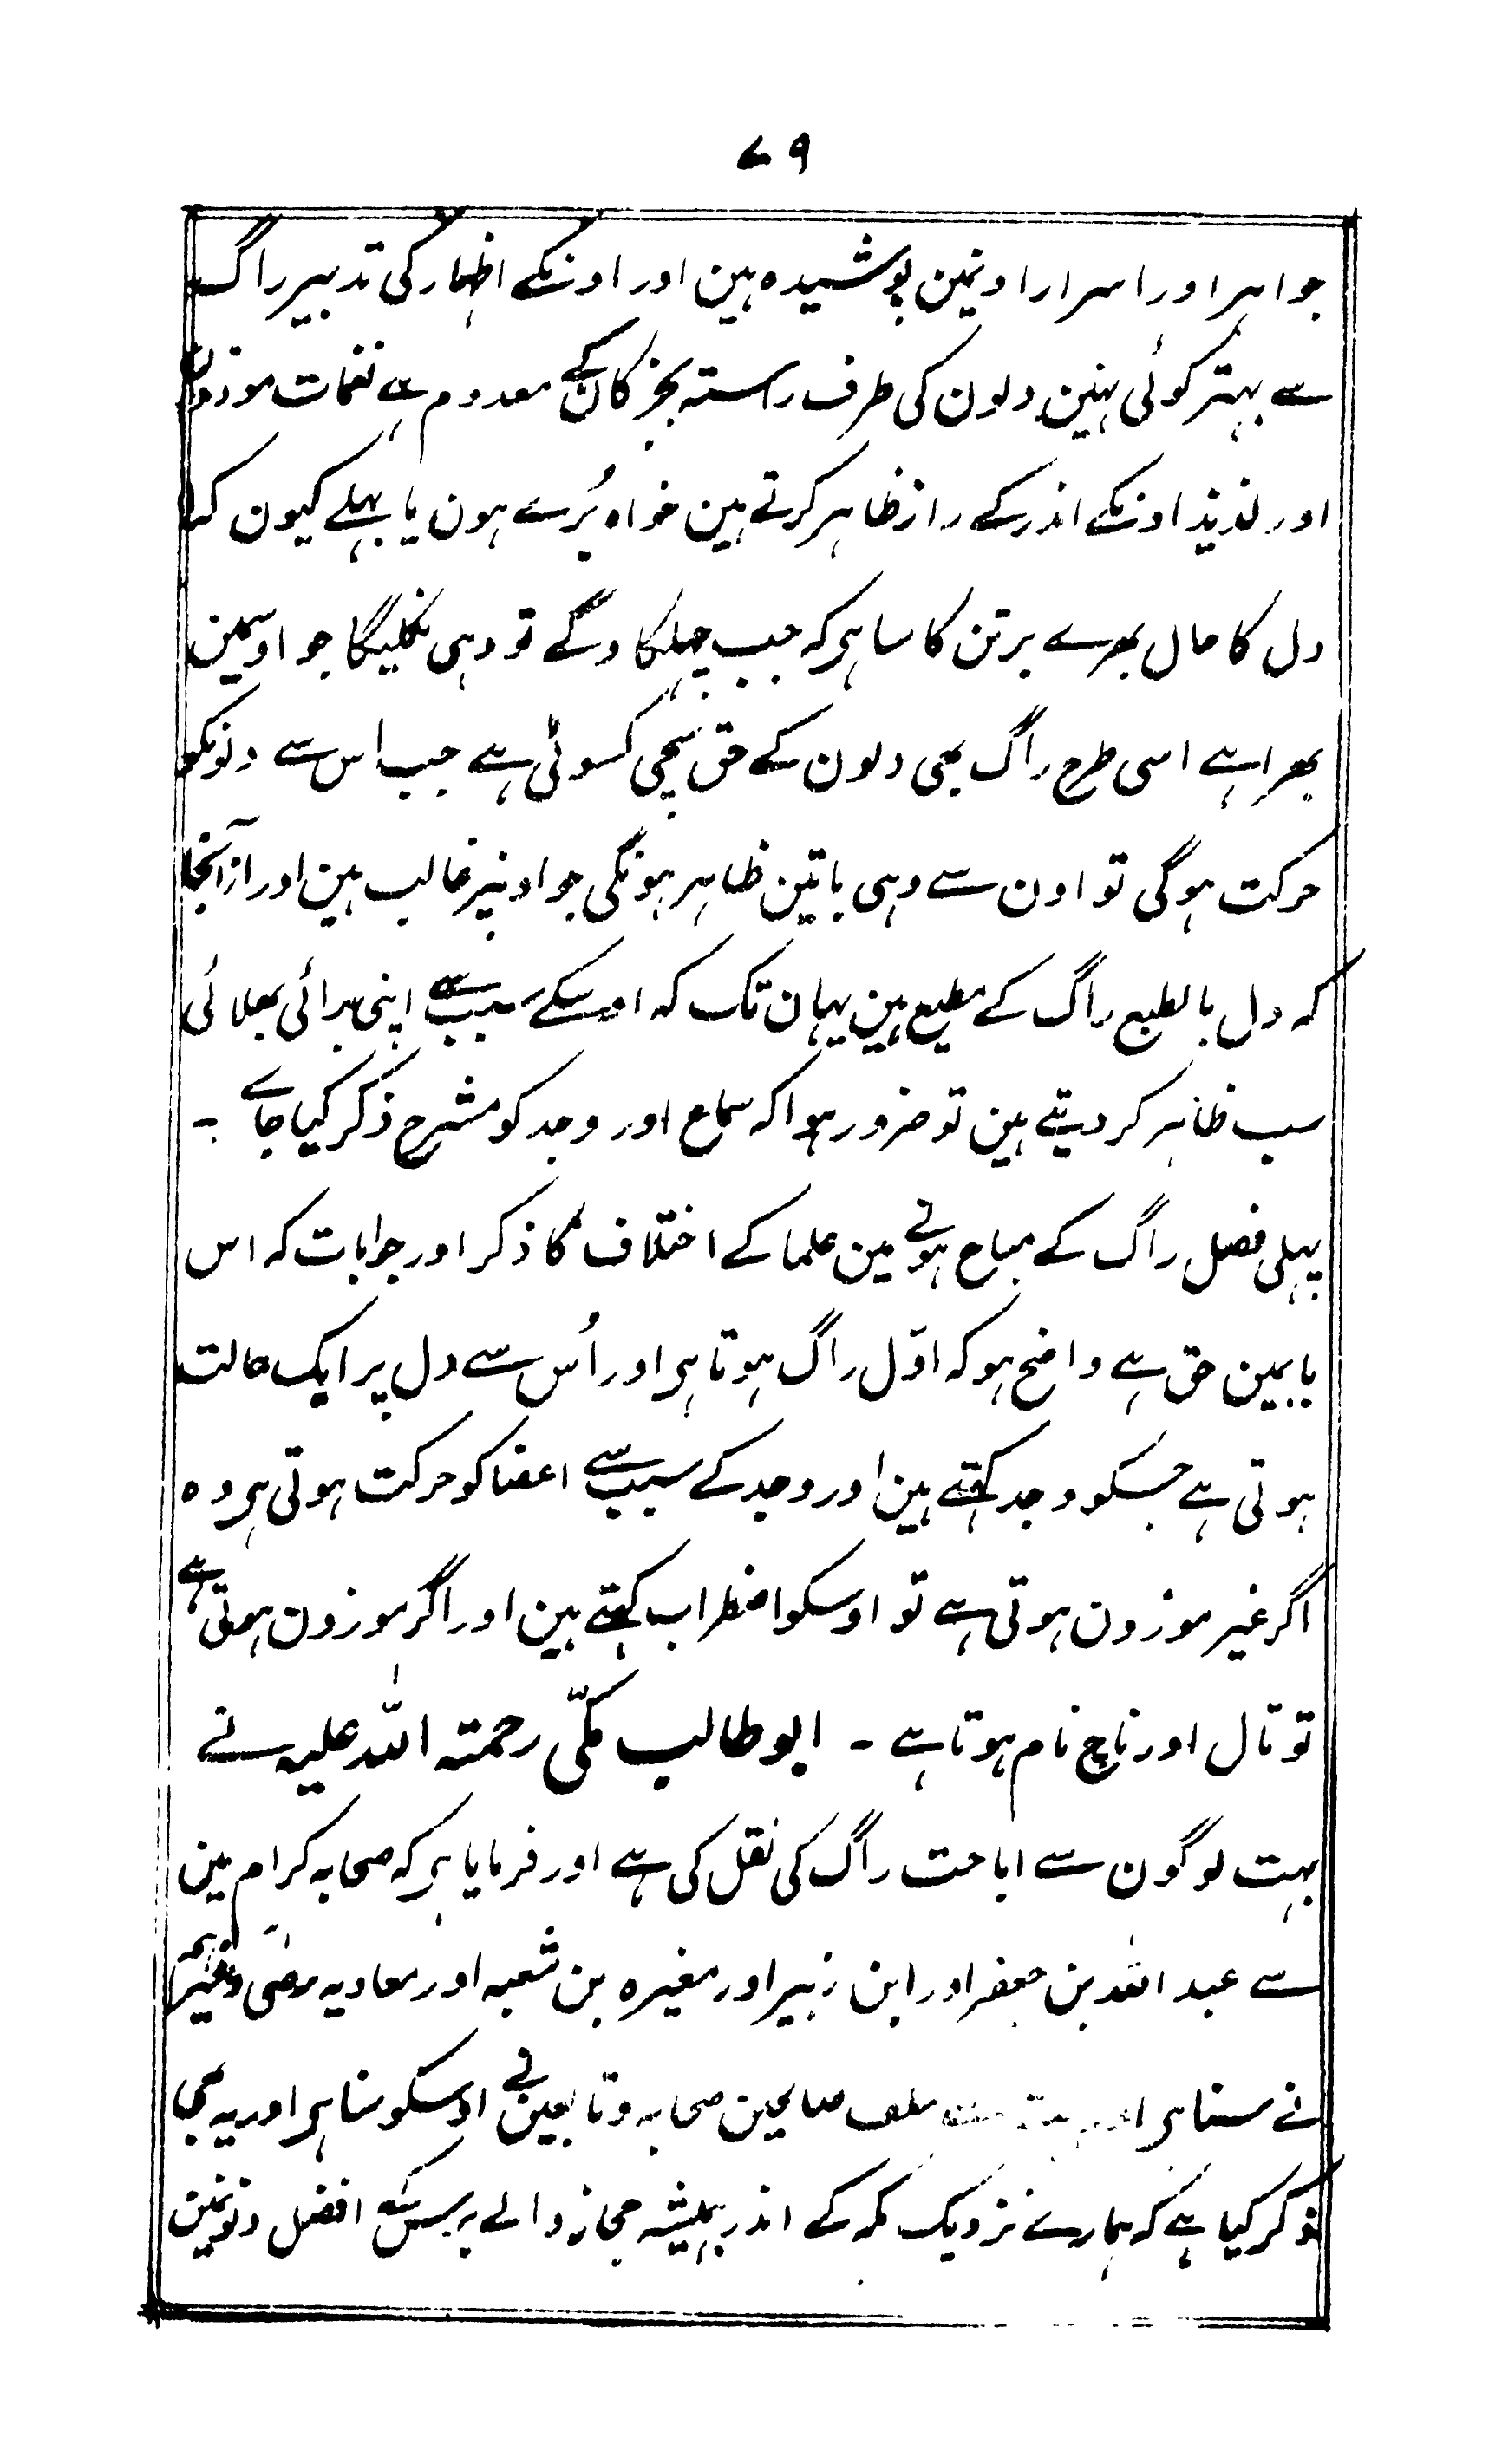 ٧٩
جواہر اور اسرار اونمین پوشیدہ ہین اور اونکے اظہار کی تدبیر راگ
سے بہتر کوئی نہین دلون کی طرف راستہ بجز کان کے معدوم ہے نغمات موزون
اور لذیذ اونکے اندر کے راز ظاہر کرتے ہین خواہ بُرے ہون یا بھلے کیون کہ
دل کا حال بھرے برتن کا سا ہی کہ جب چھلکاوگے تو وہی نکلیگا جو اوسمین
بھرا ہے اسی طرح راگ بھی دلون کے حق سچی کسوٹی ہے جب اس سے دلونکو
حرکت ہوگی تو اون سے وہی باتین ظاہر ہونگی جو اونپر غالب ہین اور ازآنجا
کہ دل بالطبع راگ کے مطیع ہین یہان تک کہ اوسکے سبب سے اپنی برائی بھلائی
سب ظاہر کر دیتے ہین تو ضرور ہوا کہ سماع اور وجد کو مشرح ذکر کیا جاے ۔
پہلی فصل راگ کے مباح ہونے مین علما کے اختلاف کا ذکر اور جو بات کہ اس
بابمین حق ہے واضح ہو کہ اوّل راگ ہوتا ہی اور اُس سے دل پر ایک حالت
ہوتی ہے جسکو وجد کہتے ہین اور وجد کے سبب سے اعضا کو حرکت ہوتی ہی وہ
اگر غیر موزون ہوتی ہے تو اوسکو اضطراب کہتے ہین اور اگر موزون ہوتی ہے
تو تال اور ناچ نام ہوتا ہے ۔ ابو طالب مکّی رحمتہ اللہ علیہ نے
بہت لوگون سے اباحت راگ کی نقل کی ہے اور فرمایا ہی کہ صحابہ کرام مین
سے عبد اللہ بن جعفر اور ابن زبیر اور مغیرہ بن شعبہ اور معاویہ رضی وغیرہم
نے سنا ہی اور سلف صالحین صحابہ و تابعین نے اوسکو سنا ہی اور یہ بھی
ذکر کیا ہے کہ ہمارے نزدیک مکہ کے اندر ہمیشہ حجاز والے برس کے افضل دنونمین